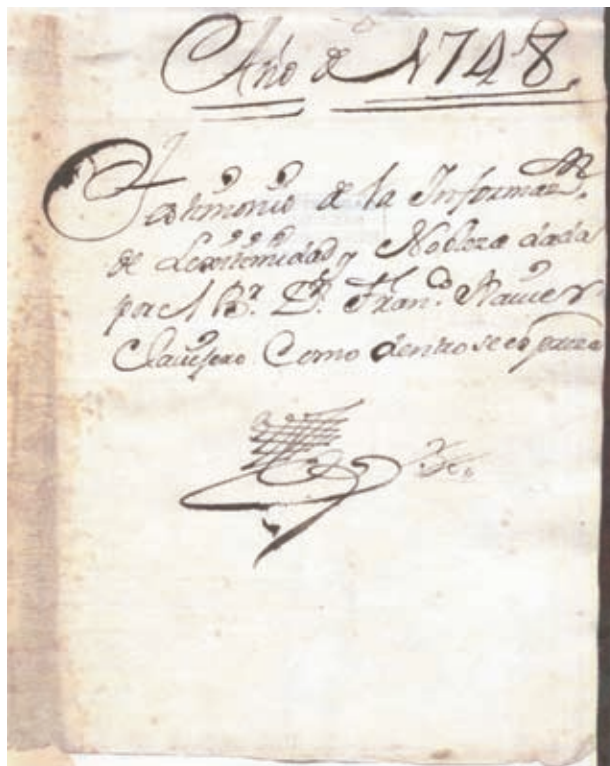 Año de 1748.
Testimonio de la Informaz.on
de Lexitimidad y Nobleza dada
por el Br. Dn. Franco. Xavier
Clavijero Como dentro se expresa